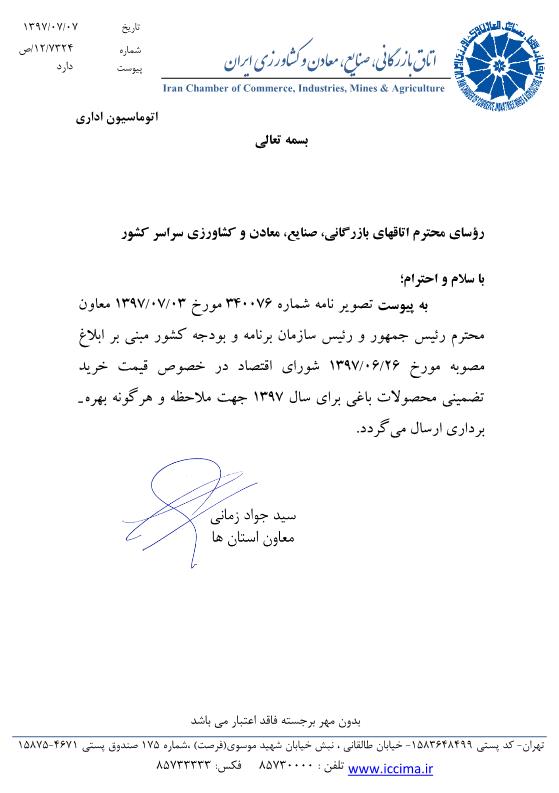 تاریخ ۱۳۹۷/۰۷/۰۷
شماره ۱۲/۷۳۲۴/ص
پیوست دارد
اتاق بازرگانی، صنایع، معادن و کشاورزی ایران
Iran Chamber of Commerce, Industries, Mines & Agriculture
اتوماسیون اداری
بسمه تعالی
رؤسای محترم اتاقهای بازرگانی، صنایع، معادن و کشاورزی سراسر کشور
با سلام و احترام؛
به پیوست تصویر نامه شماره ۳۴۰۰۷۶ مورخ ۱۳۹۷/۰۷/۰۳ معاون
محترم رئیس جمهور و رئیس سازمان برنامه و بودجه کشور مبنی بر ابلاغ
مصوبه مورخ ۱۳۹۷/۰۶/۲۶ شورای اقتصاد در خصوص قیمت خرید
تضمینی محصولات باغی برای سال ۱۳۹۷ جهت ملاحظه و هرگونه بهره-
برداری ارسال می‌گردد.
سید جواد زمانی
معاون استان ها
بدون مهر برجسته فاقد اعتبار می باشد
تهران- کد پستی ۱۵۸۳۶۴۸۴۹۹- خیابان طالقانی ، نبش خیابان شهید موسوی(فرصت) ،شماره ۱۷۵ صندوق پستی ۴۶۷۱-۱۵۸۷۵
www.iccima.ir تلفن : ۸۵۷۳۰۰۰۰ فکس: ۸۵۷۳۳۳۳۳